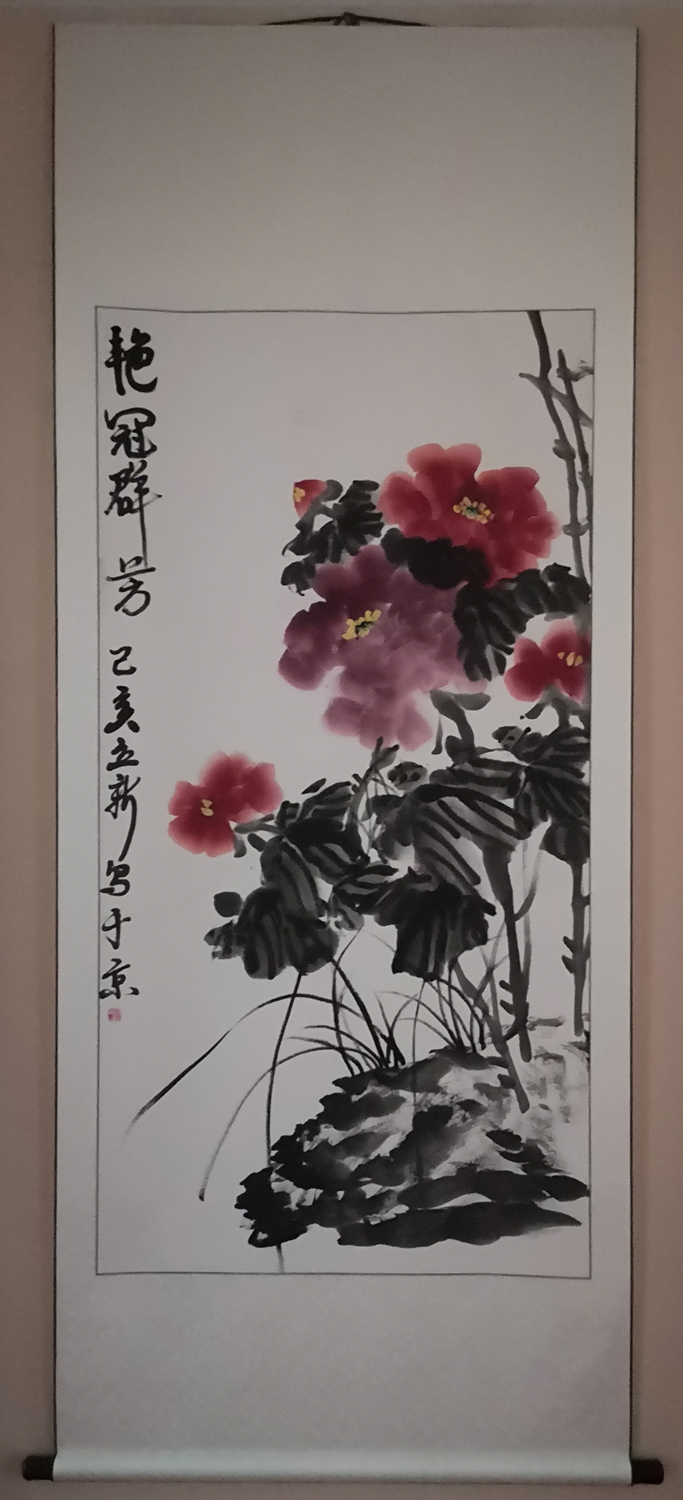 艳冠群芳 己亥立新写于京